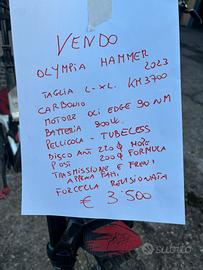 VENDO
OLYMPIA HAMMER
2023
TAGLIA L-XL. KM 3700
CARBONIO
MOTORE OLI EDGE 90 NM
BATTERIA 900W.
PELLICOLA - TUBELESS
DISCO ANT 220 ϕ HOPE
POST 200 ϕ FORMULA
TRASMISSIONE E FRENI
APPENA FATTI
FORCELLA REVISIONATA
€ 3'500
subito